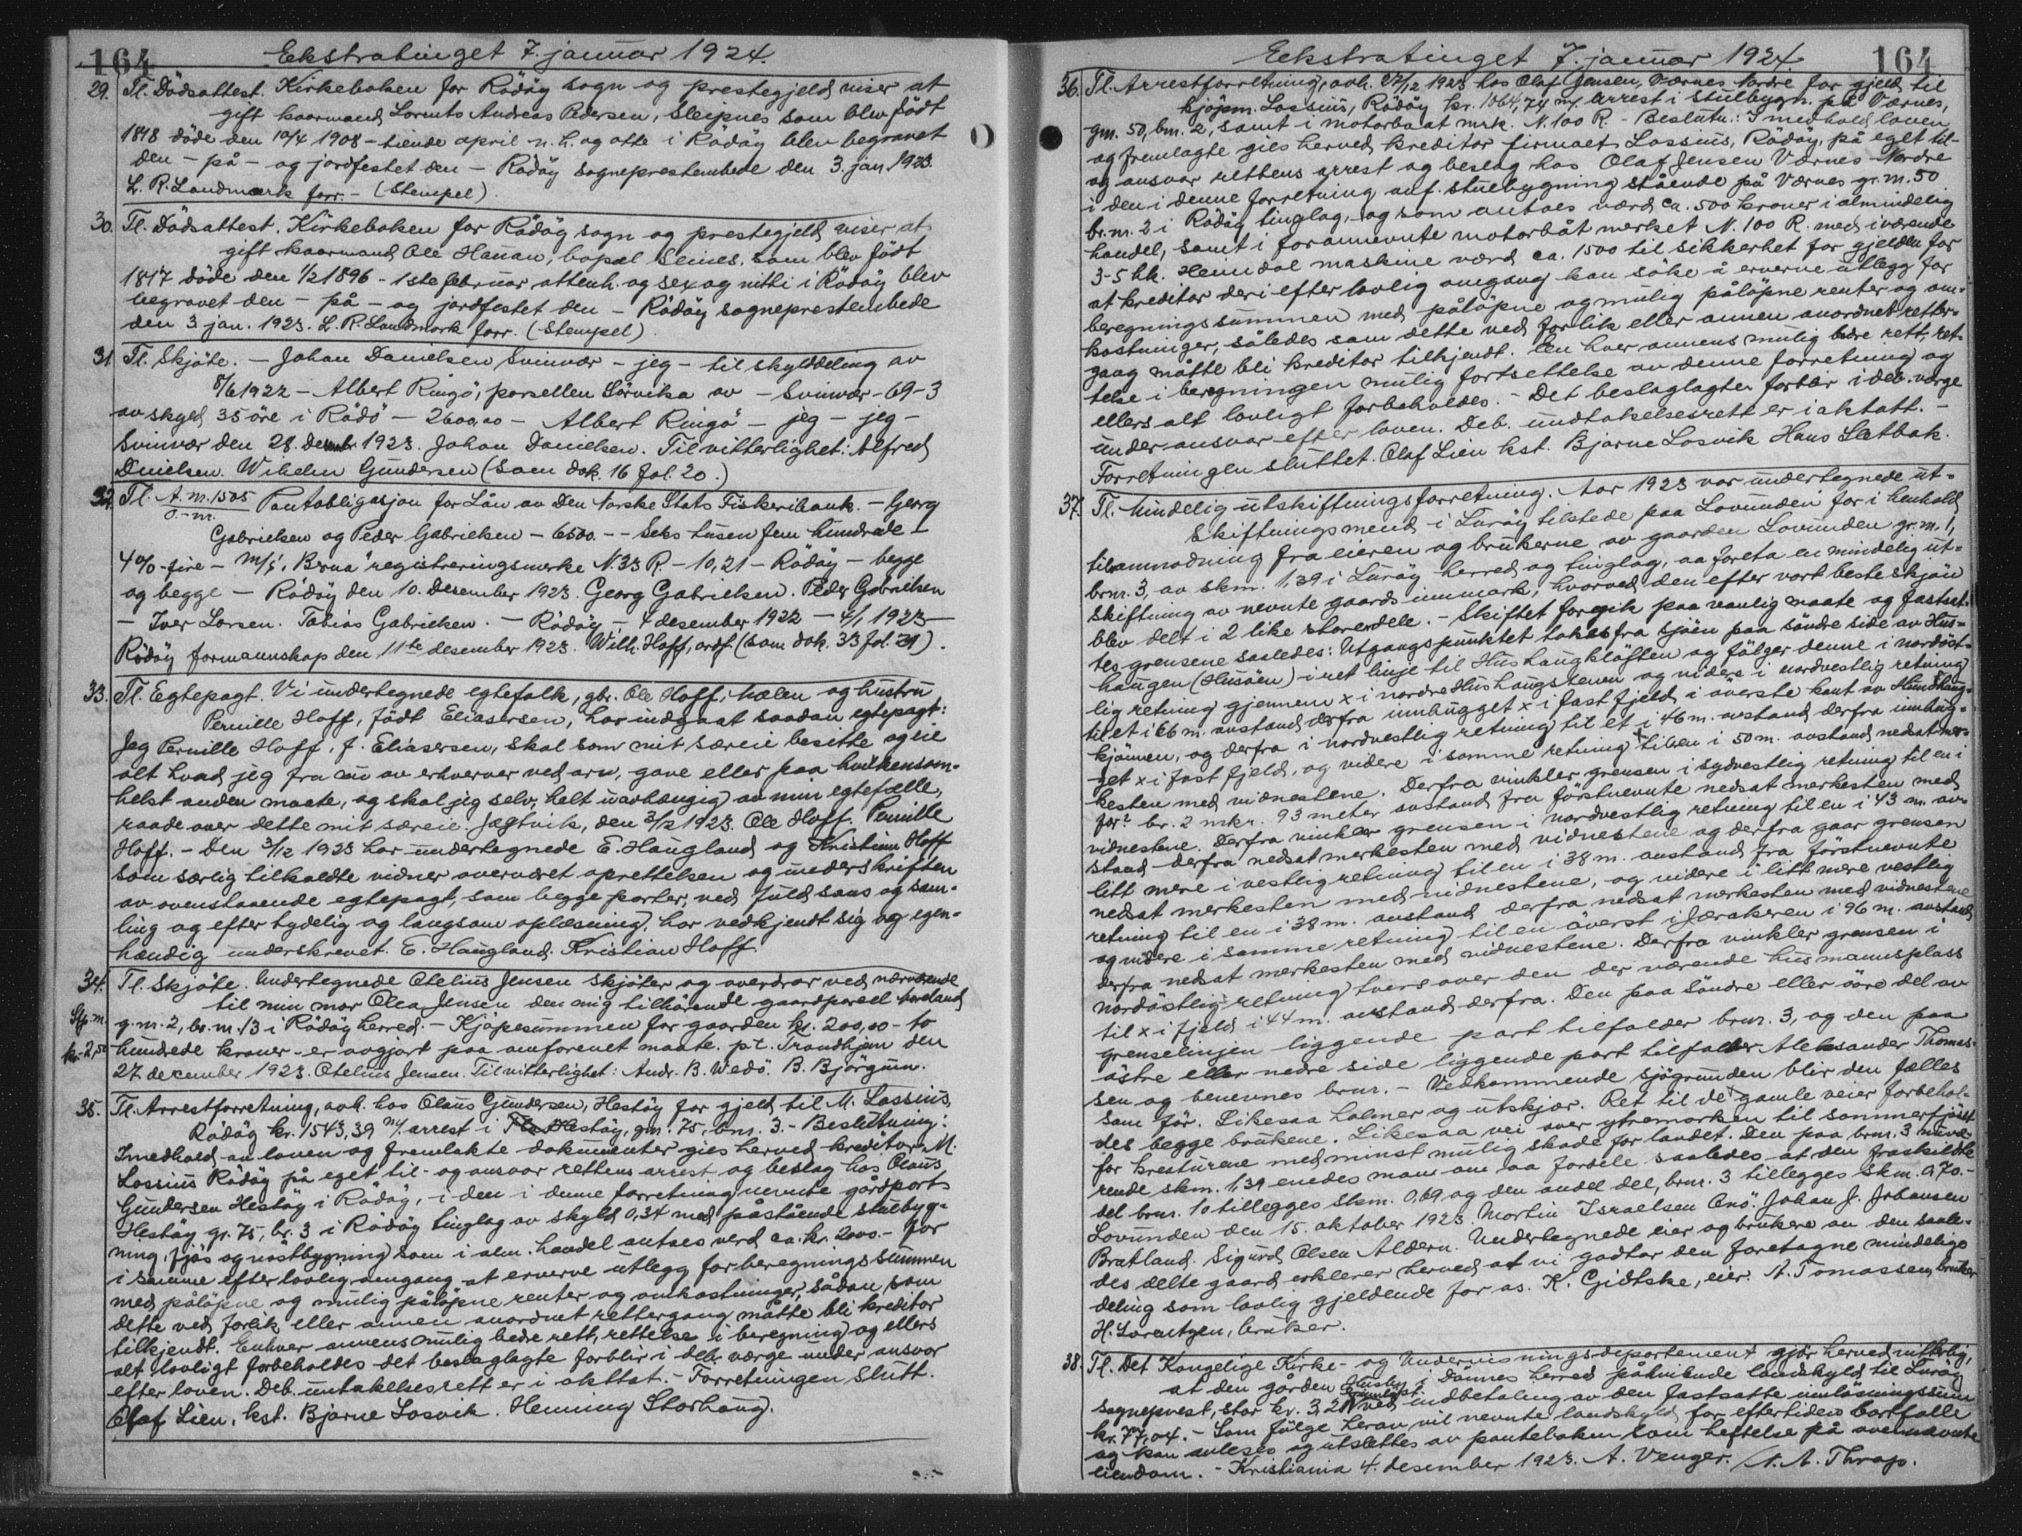 164
Ekstratinget 7. januar 1924.
29. Tl. Dödsattest. Kirkeboken for Rödöy sogn og prestegjeld viser at
gift kaarmand Lorents Andreas Pedersen, Sleipnes som blev født
1818 döde den 10/4 1908 - tiende april n. h. og otte i Rödöy blev begravet
den - på - og jordfestet den - Rödöy sogneprestembede den 3. jan. 1923.
L. R. Landmark forr. - (Stempel).
30. Tl. Dödsattest. Kirkeboken for Rödöy sogn og prestegjeld viser at
gift kaarmand Ole Hanan, bopæl Selnes, som blev født
1817 døde den 1/2 1896 - 1ste februar attenh. og sex og nitti i Rödöy blev
begravet den - på - og jordfestet den - Rödöy sogneprestembede
den 3 jan. 1923. L. R. Landmark forr. (Stempel)
31. Tl. Skjöte. - Johan Danielsen Svinvær - jeg - til skylddeling av
8/6 1922 - Albert Ringö, parsellen Sörvika av - Svinvær - 69-3
av skyld 35 öre i Rödö - 2600,00 - Albert Ringö - jeg - jeg -
Svinvær den 28. Decmbr 1923. Johan Danielsen. Til vitterlighet: Alfred
Dnielsen. Wihelm Gundersen (Som dok. 16 fol. 20.)
32. Tl. A. m. 1505 Pantobligasjon for Lån av Den Norske Stats Fiskeribank. - Georg
o. - m.
Gabrielsen og Peder Gabrielsen - 6500. - - Seks tusen fem hundrede -
4 % - fire - M/s. "Brua" registreringsmerke N. 33 R. - 10,21 - Rödöy - begge
og begge - Rödöy den 10. Desember 1923. Georg Gabrielsen. Peder Gabrielsen
- Iver Larsen. Tobias Gabrielsen. - Rödöy - 4 desember 1922 - 4/1 1923 -
Rödöy formannskap den 11te desember 1923. Wilh. Hoff, ordf. (som dok. 33 fol. 21).
33. Tl. Egtepagt. Vi undertegnede egtefolk, gbr. Ole Hoff, Mælen og hustru
Pernille Hoff, født Eliasersen, har indgaat saadan egtepagt:
Jeg Pernille Hoff, f. Eliasersen, skal som mit særeie besitte og eie
alt hvad jeg fra nu av erhverver ved arv, gave eller paa hvilkensom-
helst anden maate, og skal jeg selv, helt uavhængig av min egtefælle,
raade over dette mit særeie. Jægtvik, den 3/12 1923. Ole Hoff. Pernille
Hoff. - Den 3/12 1923 har undertegnede E. Haugland og Kristian Hoff
som særlig tilkaldte vidner overværet oprettelsen og underskriften
av ovenstaaende egtepagt, som begge parter, ved fuld sans og sam-
ling og efter tydelig og langsom oplæsning, har vedkjendt sig og egen-
hændig underskrevet. E. Haugland. Kristian Hoff.
34. Tl. Skjöte. Undertegnede Otelius Jensen skjöter og overdrar ved nærværende
til min mor Olea Jensen den mig tilhörende gaardparsel Nordland
Stp. m. g. m. 2, br. m. 13 i Rödöy herred. - Kjöpesummen for gaarden kr. 200,00 - to
kr. 2,50 hundrede kroner - er avgjort paa omforenet maate. p. t. Trondhjem den
27 december 1923. Otelius Jensen. Til vitterlighet: Andr. B. Wedö. B. Björgum.
35. Tl. Arrestforretning, avh. hos Olaus Gundersen, Hestöy for gjeld til M. Lossius
Rödöy kr. 1543,39 m/ arrest i Hestöy, gm. 75, bm. 3. - Beslutning:
I medhold av loven og fremlakte dokumenter gies herved kreditor M.
Lossius Rödöy på eget til- og ansvar rettens arrest og beslag hos Olaus
Gundersen Hestöy i Rödöy, - i den i denne forretning nevnte gårdpart
Hestöy gr. 75, br. 3 i Rödöy tinglag av skyld 0,34 med påstående stuebyg-
ning, fjös og nöstbygning som i alm. handel antaes verd ca. kr. 2000. - for
i samme efter lovlig omgang at erverve utlegg for beregningssummen
med pålöpne og mulig pålöpne renter og omkostninger, sådan som
dette ved forlik eller annen anordnet rettergang måtte bli kreditor
tilkjendt. Enhver annens mulig bedre rett, rettelse i beregning og ellers
alt lovligt forbeholdes det beslaglagte forblir i deb. værge under ansvar
efter loven. Deb. untakelsesrett er i aktatt. - Forretningen slutt.
Olaf Lien, kst. Bjarne Losvik. Henning Storhaug.
164
Eekstratinget 7. januar 1924
36. Tl. Arrestforretning, avh. 27/12 1923 hos Olaf Jensen, Værnes Nordre for gjeld til
kjöpm. Lossius, Rödöy kr. 1064,74 m/ arrest i stuebygn. på Værnes,
gm. 50, bm. 2, samt i motorbaat mrk. N. 100 R. - Beslutn.: I medhold loven
og fremlagte gies herved kreditor firmaet Lossius, Rödöy, på eget til-
og ansvar rettens arrest og beslag hos Olaf Jensen Værnes Nordre
i den i denne forretning anf. stuebygning stående på Værnes gr. m. 50
br. m. 2 i Rödöy tinglag, og som antaes værd ca. 500 kroner i almindelig
handel, samt i forannevnte motorbåt merket N. 100 R. med iværende
3-5 hk. Heimdal maskine værd ca. 1500 til sikkerhet for gjelden for
at kreditor deri efter lovlig omgang kan söke å erverve utlegg for
beregningssummen med pålöpne og mulig pålöpne renter og om-
kostninger, således som dette ved forlik eller annen anordnet retter-
gang måtte bli kreditor tilkjendt. En hver annens mulig bedre rett, ret-
telse i beregningen mulig fortsettelse av denne forretning og
ellers alt lovligt forbeholdes. - Det beslaglagte forblir i deb. værge
under ansvar efter loven. Deb. undtakelsesrett er i aktatt. -
Forretningen sluttet. Olaf Lien kst. Bjarne Losvik Hans Sletbak.
37. Tl. Mindelig utskiftningsforretning. Aar 1923 var undertegnede ut-
skiftningsmend i Luröy tilstede paa Lovunden for i henhold
til anmodning fra eieren og brukerne av gaarden Lovunden gr. m. 1,
brnr. 3, av skm. 1.39 i Luröy herred og tinglag, aa foreta en mindelig ut-
skiftning av nevnte gaards innmark, hvorved den efter vort beste skjön
blev delt i 2 like storerdele. - Skiftet foregik paa vanlig maate og fastsat-
tes grensene saaledes: Utgangspunktet takes fra sjöen paa söndre side av Hus-
haugen (Husöen) i ret linje til Hushaugklöften og fölger denne i nordöst-
lig retning gjennem x i nordre Hushaugstenen og videre i nordvestlig retning
til et i 66 m. avstand derfra innhugget x i fast fjeld, i överste kant av Hunshaug-
kjönnen, og derfra i nordvestlig retning til et i 46 m. avstand derfra innhug-
get x i fast fjeld, og videre i samme retning til en i 50 m. avstand nedsat mer-
kesten med vidnestene. Derfra vinkler grensen i sydvestlig retning til en i
for? br. 2 mkr. 93 meter avstand fra förstnevnte nedsat merkesten med
vidnestene. Derfra vinkler grensen i nordvestlig retning til en i 43 m. av-
stand derfra nedsat merkesten med vidnestene og derfra gaar grensen
litt mere i vestlig retning til en i 38 m. avstand fra förstnevnte
nedsat merkesten med vidnestene, og videre i litt mere vestlig
retning til en i 38 m. avstand derfra nedsat merkesten med vidnestene
og videre i samme retning til en överst i Jærskeren i 96 m. avstand
derfra nedsat merkesten med vidnestene. Derfra vinkler grensen i
nordöstlig retning tvers over den der værende husmannsplass
til x i fjeld i 44 m. avstand derfra. Den paa söndre eller övre del av
grenselinjen liggende part tilfalder brnr. 3, og den paa
östre eller nedre side liggende part tilfalder Aleksander Thomas-
sen og benevnes brnr. - Vedkommende sjögrunden blir den fælles
som för. Likesaa holmer og utskjær. Ret til de gamle veier forbehol-
des begge brukene. Likesaa vei over ytremarken til sommerfjöst
for kreturene med minst mulig skade for landet. Den paa brnr. 3 nuvæ-
rende skm. 1.39 enedes man om aa fordele saaledes at den fraskildte
del brnr. 10 tillegges Skm. 0,69 og den andel del, brnr. 3 tillegges Skm. 0,70. -
Lovunden den 15. oktober 1923. Morten Israelsen Onö. Johan J. Johansen
Bratland. Sigurd Olsen Aldern. Undertegnede eier og brukere av den saale-
des delte gaard erklerer herved at vi godtar den foretagne mindelige
deling som lovlig gjeldende for os. K. Gidtske, eier. A. Tomassen, bruker
H. Lorentzen, bruker.
38. Tl. Det Kongelige Kirke- og Undervisningsdepartement gjör herved vitterlig,
at den gården Husby i Dönnes herred påhvilende landskyld til Luröy
sogneprest, stor kr. 3,20 ved indbetaling av den fastsatte innlösningssum
kr. 77,04. - Som fölge herav vil nevnte landskyld for eftertiden bortfalle
og kan avleses og utslettes av panteboken som heftelse på ovennævnte
eiendom. - Kristiania 4. desember 1923. A. Venger. / N. A. Thrap.